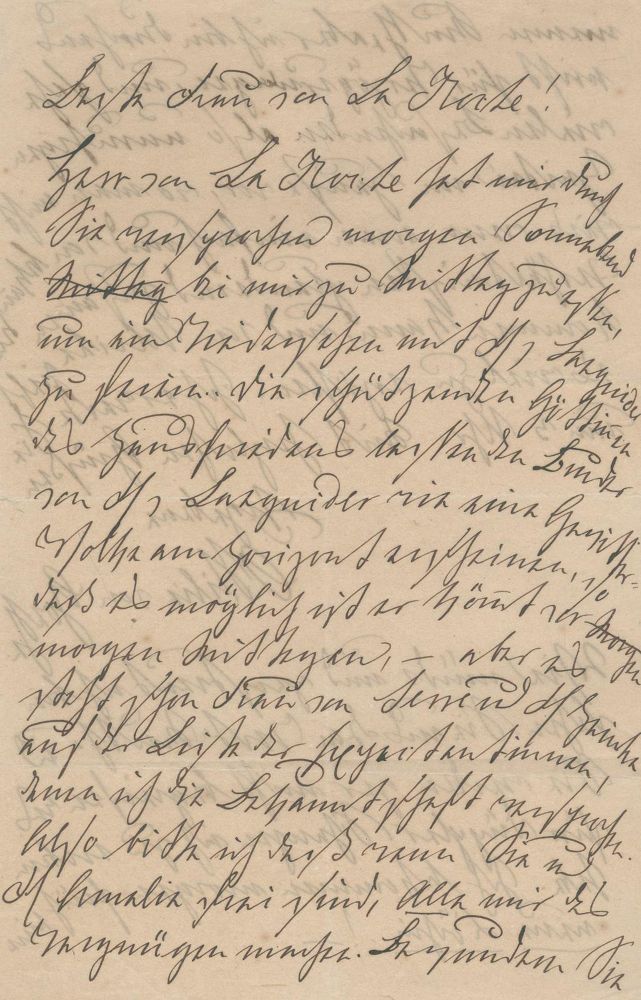 Beste Frau von La Roche!
Herr von La Roche hat mir durch
Sie versprochen morgen Sonnabend
Mittag bei mir zu Mittag zu essen,
um ein Wiedersehen mit
zu feiern. Die schützenden Göttinnen
des Hausfriedens lassen den Bruder
von wie eine Gewitter-
Wolke am Horizont erscheinen, so
daß es möglich ist er kömt vor
morgen Mittagen, – aber es
steht schon Frau von
auf der Liste der Expectantinnen,
denen ich die Bekanntschaft versprochen.
Also bitte ich daß wenn Sie und
Amalie frei sind, Alle mir das
Vergnügen machen. Sie